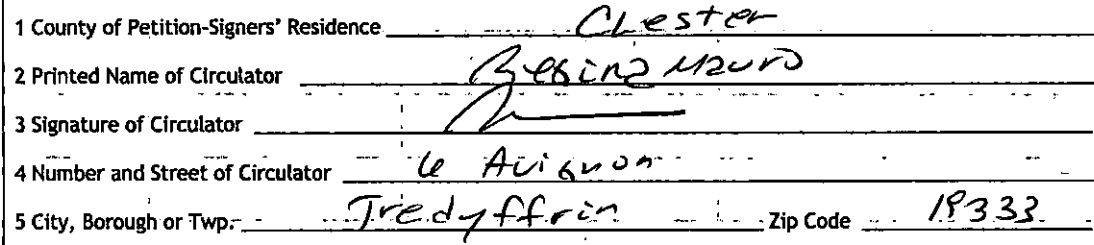 1 County of Petition-Signers' Residence Chester
2 Printed Name of Circulator Regina Mauro
3 Signature of Circulator
4 Number and Street of Circulator Avignon
5 City, Borough or Twp. Tredyffrin Zip Code 19333